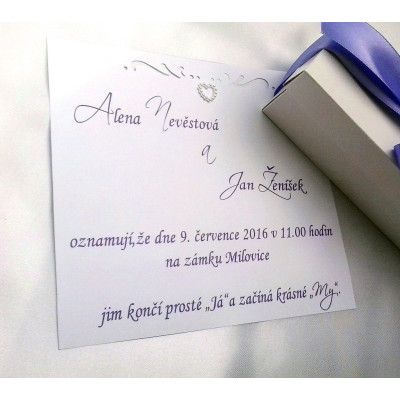 Alena Nevěstová
a
Jan Ženíšek,
oznamují,že dne 9. července 2016 v 11.00 hodin
na zámku Milovice
jim končí prosté „Já“a začíná krásné „My“.